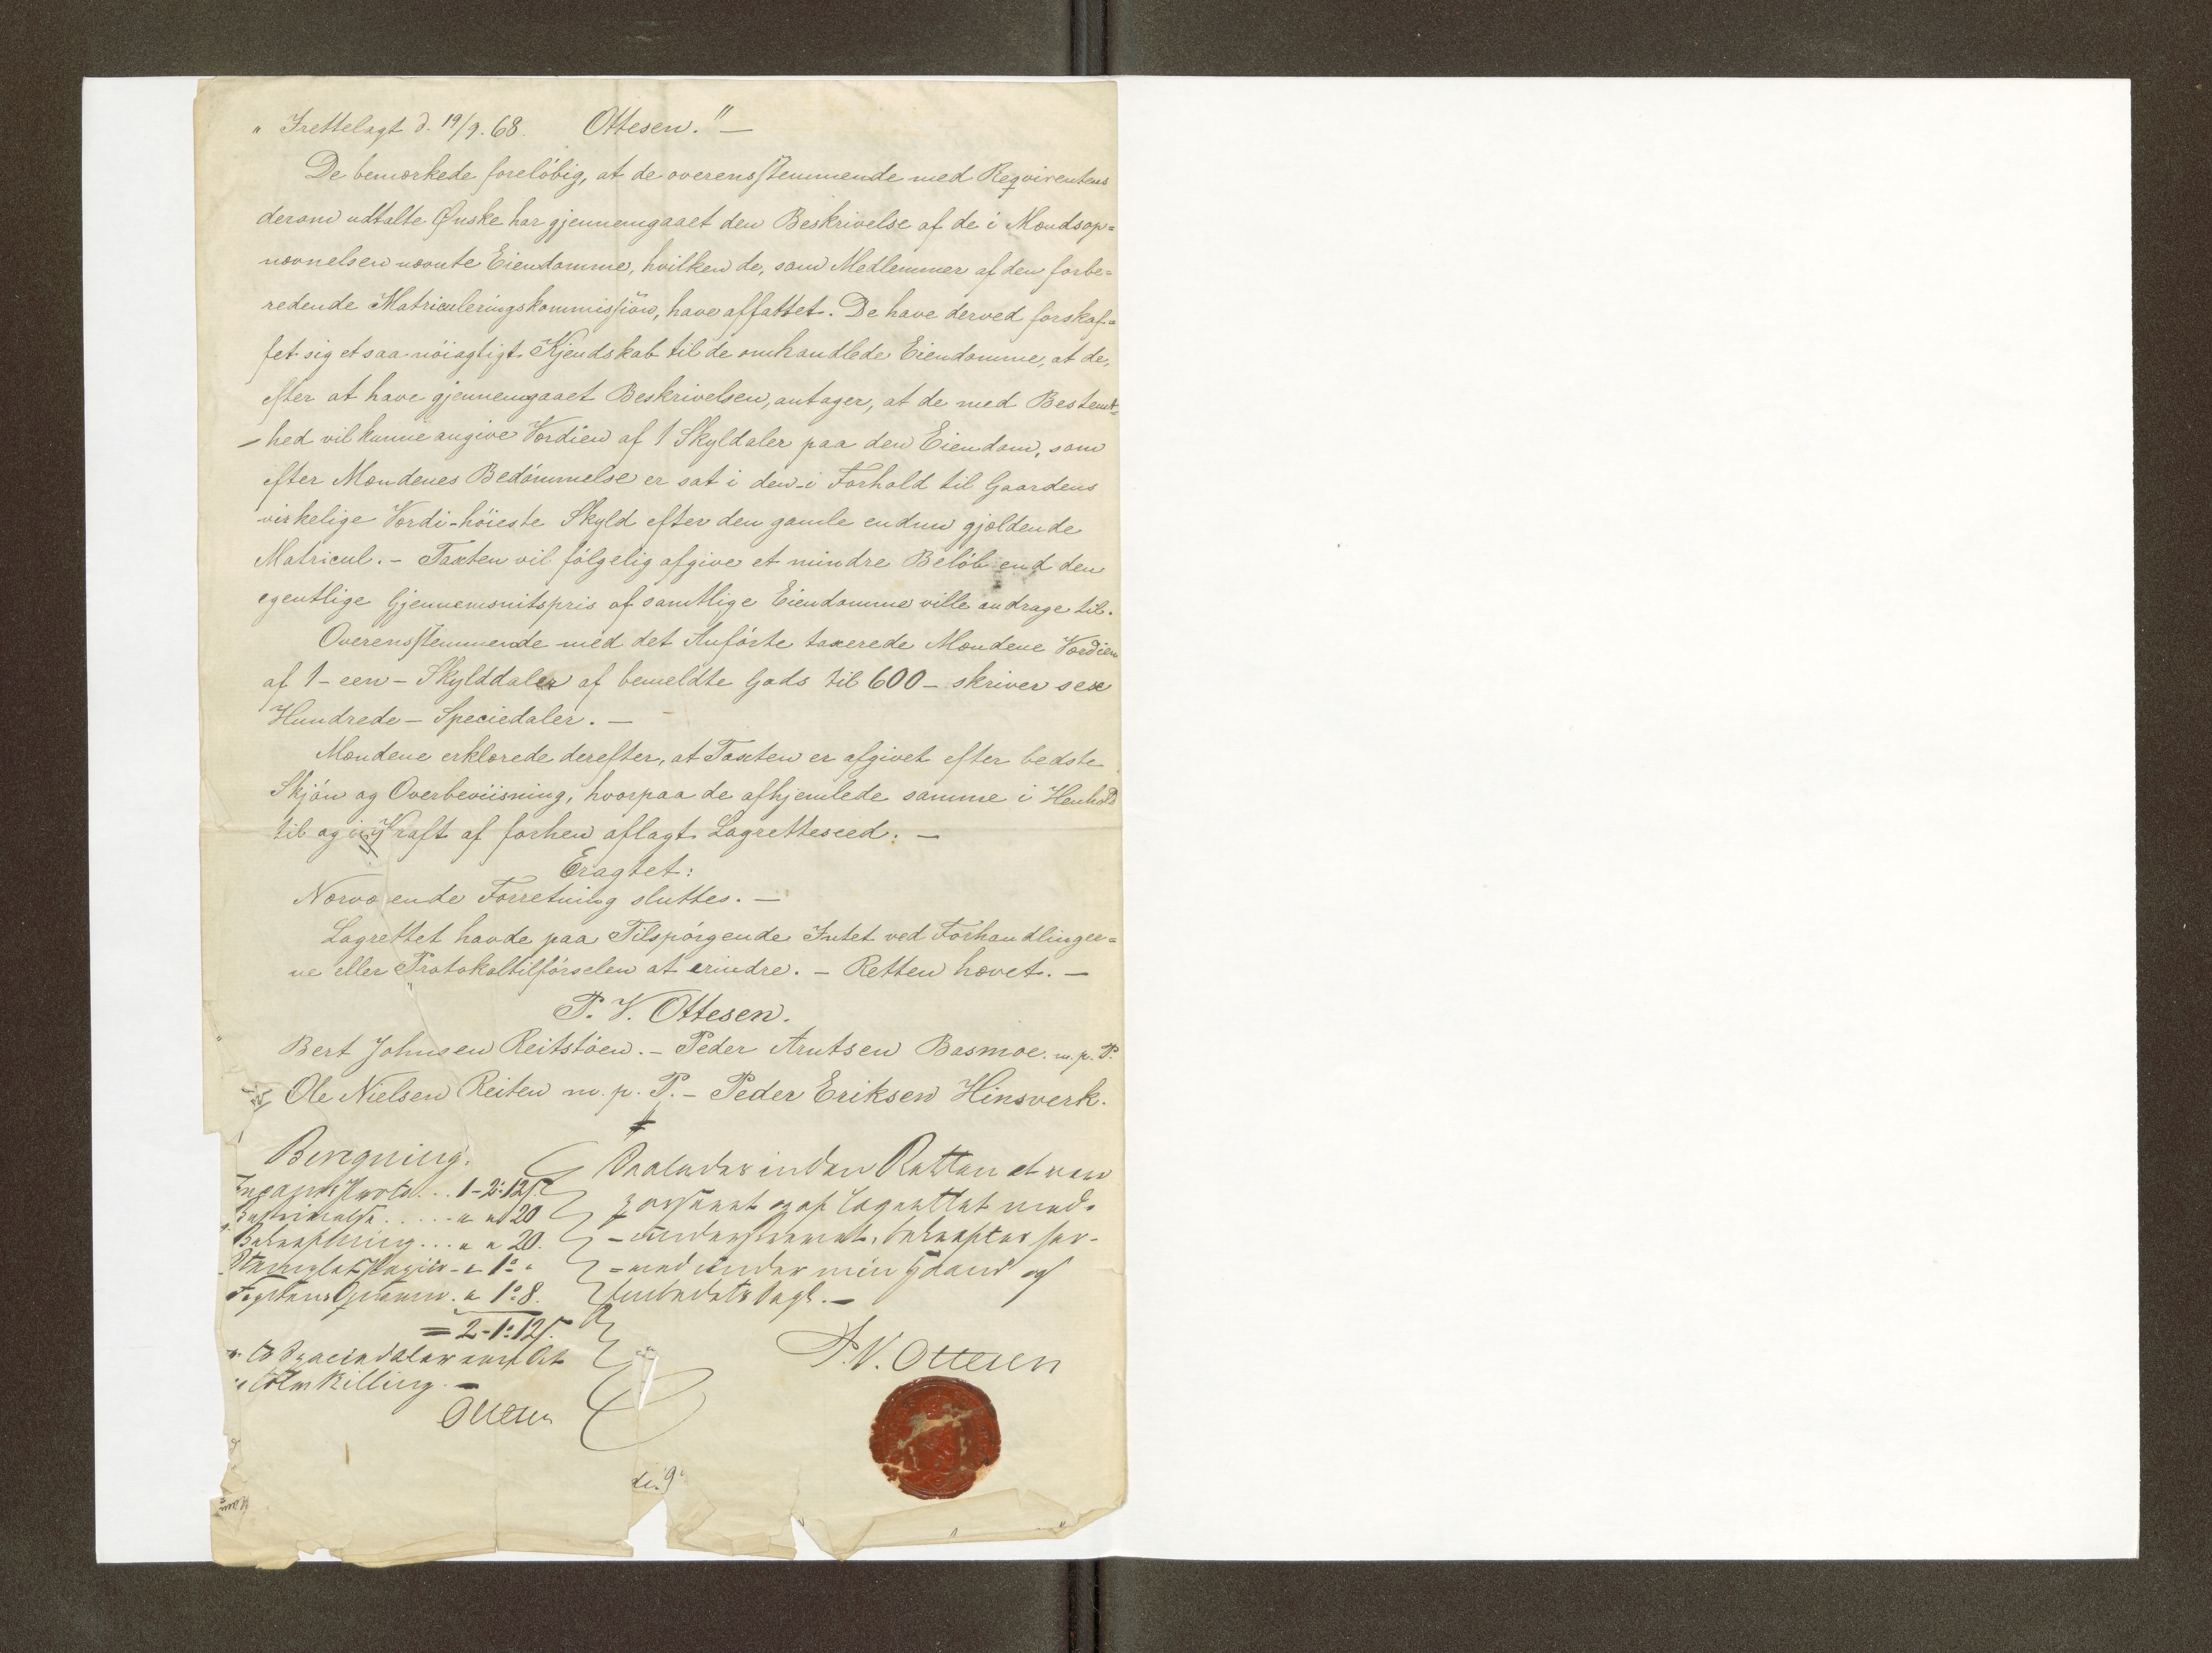 " Irettelagt d. 19/9. 68. Ottesen." —
De bemærkede foreløbig, at de overensstemmende med Reqvirentens
derom udtalte Ønske har gjennemgaaet den Beskrivelse af de i Mændsop=
nævnelsen nævnte Eiendomme, hvilken de, som Medlemmer af den forbe=
redende Matriculeringskommission, have affattet. De have derved forskaf=
fet sig et saa nöiagtigt Kjendskab til de omhandlede Eiendomme, at de,
efter at have gjennemgaaet Beskrivelsen, antager, at de med Bestemt=
- hed vil kunne angive Værdien af 1 Skyldaler paa den Eiendom, som
efter Mændenes Bedömmelse er sat i den - i Forhold til Gaardens
virkelige Værdi - höieste Skyld efter den gamle endnu gjældende
Matricul. - Taxten vil fölgelig afgive et mindre Belöb end den
egentlige Gjennemsnitspris af samtlige Eiendomme ville andrage til.
Overensstemmende med det Anförte taxerede Mændene Værdien
af 1 - een - Skylddaler af bemeldte Gods til 600 - skriver sex
Hundrede - Speciedaler. —
Mændene erklærede derefter, at Taxten er afgivet efter bedste
Skjön og Overbeviisning, hvorpaa de afhjemlede samme i Henhold
til og i Kraft af forhen aflagt Lagretteseed. —
Eragtet:
Nærværende Forretning sluttes. —
Lagrettet havde paa Tilspörgende Intet ved Forhandlinger=
ne eller Protokoltilförselen at erindre. - Retten hævet. —
P. V. Ottesen.
Bert Johnsen Reitstöen. - Peder Arntsen Basmoe. m. p. P.
Ole Nielsen Reiten m. p. P. - Peder Eriksen Hinsverk.
Beregning.
Saaledes inden Retten at være
1 - 2: 12ß.
passeret og af Lagrettet med=
20
- underskrevet, bekræftes her=
Bekræftning ... " " 20.
Stemplet Papiir - " 1: "
= med under min Haand og
" 1: 8.
Embedets Segl. —
= 2 - 1: 12ß.
to Speciedaler een Ort
tolv Skilling. —
P. V. Ottesen
Ottesen